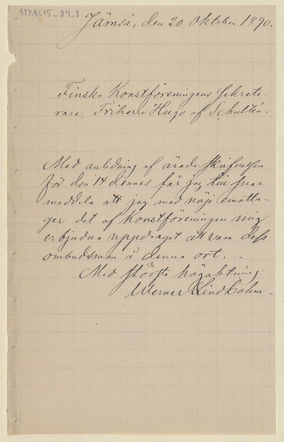 STYAC15_84_1
Jämsä, den 20 Oktober 1890.
Finska Konstföreningens Sekrete-
rare, Friherre Hugo af Schultén.
Med anledning af ärade skrifvelsen
för den 14 dennes får jag
meddela att jag med nöje emotta-
ger det af Konstföreningen mig
erbjudna uppdraget att vara dess
ombudsman å denna ort. –
Med största högaktning
Werner Lindbohm.